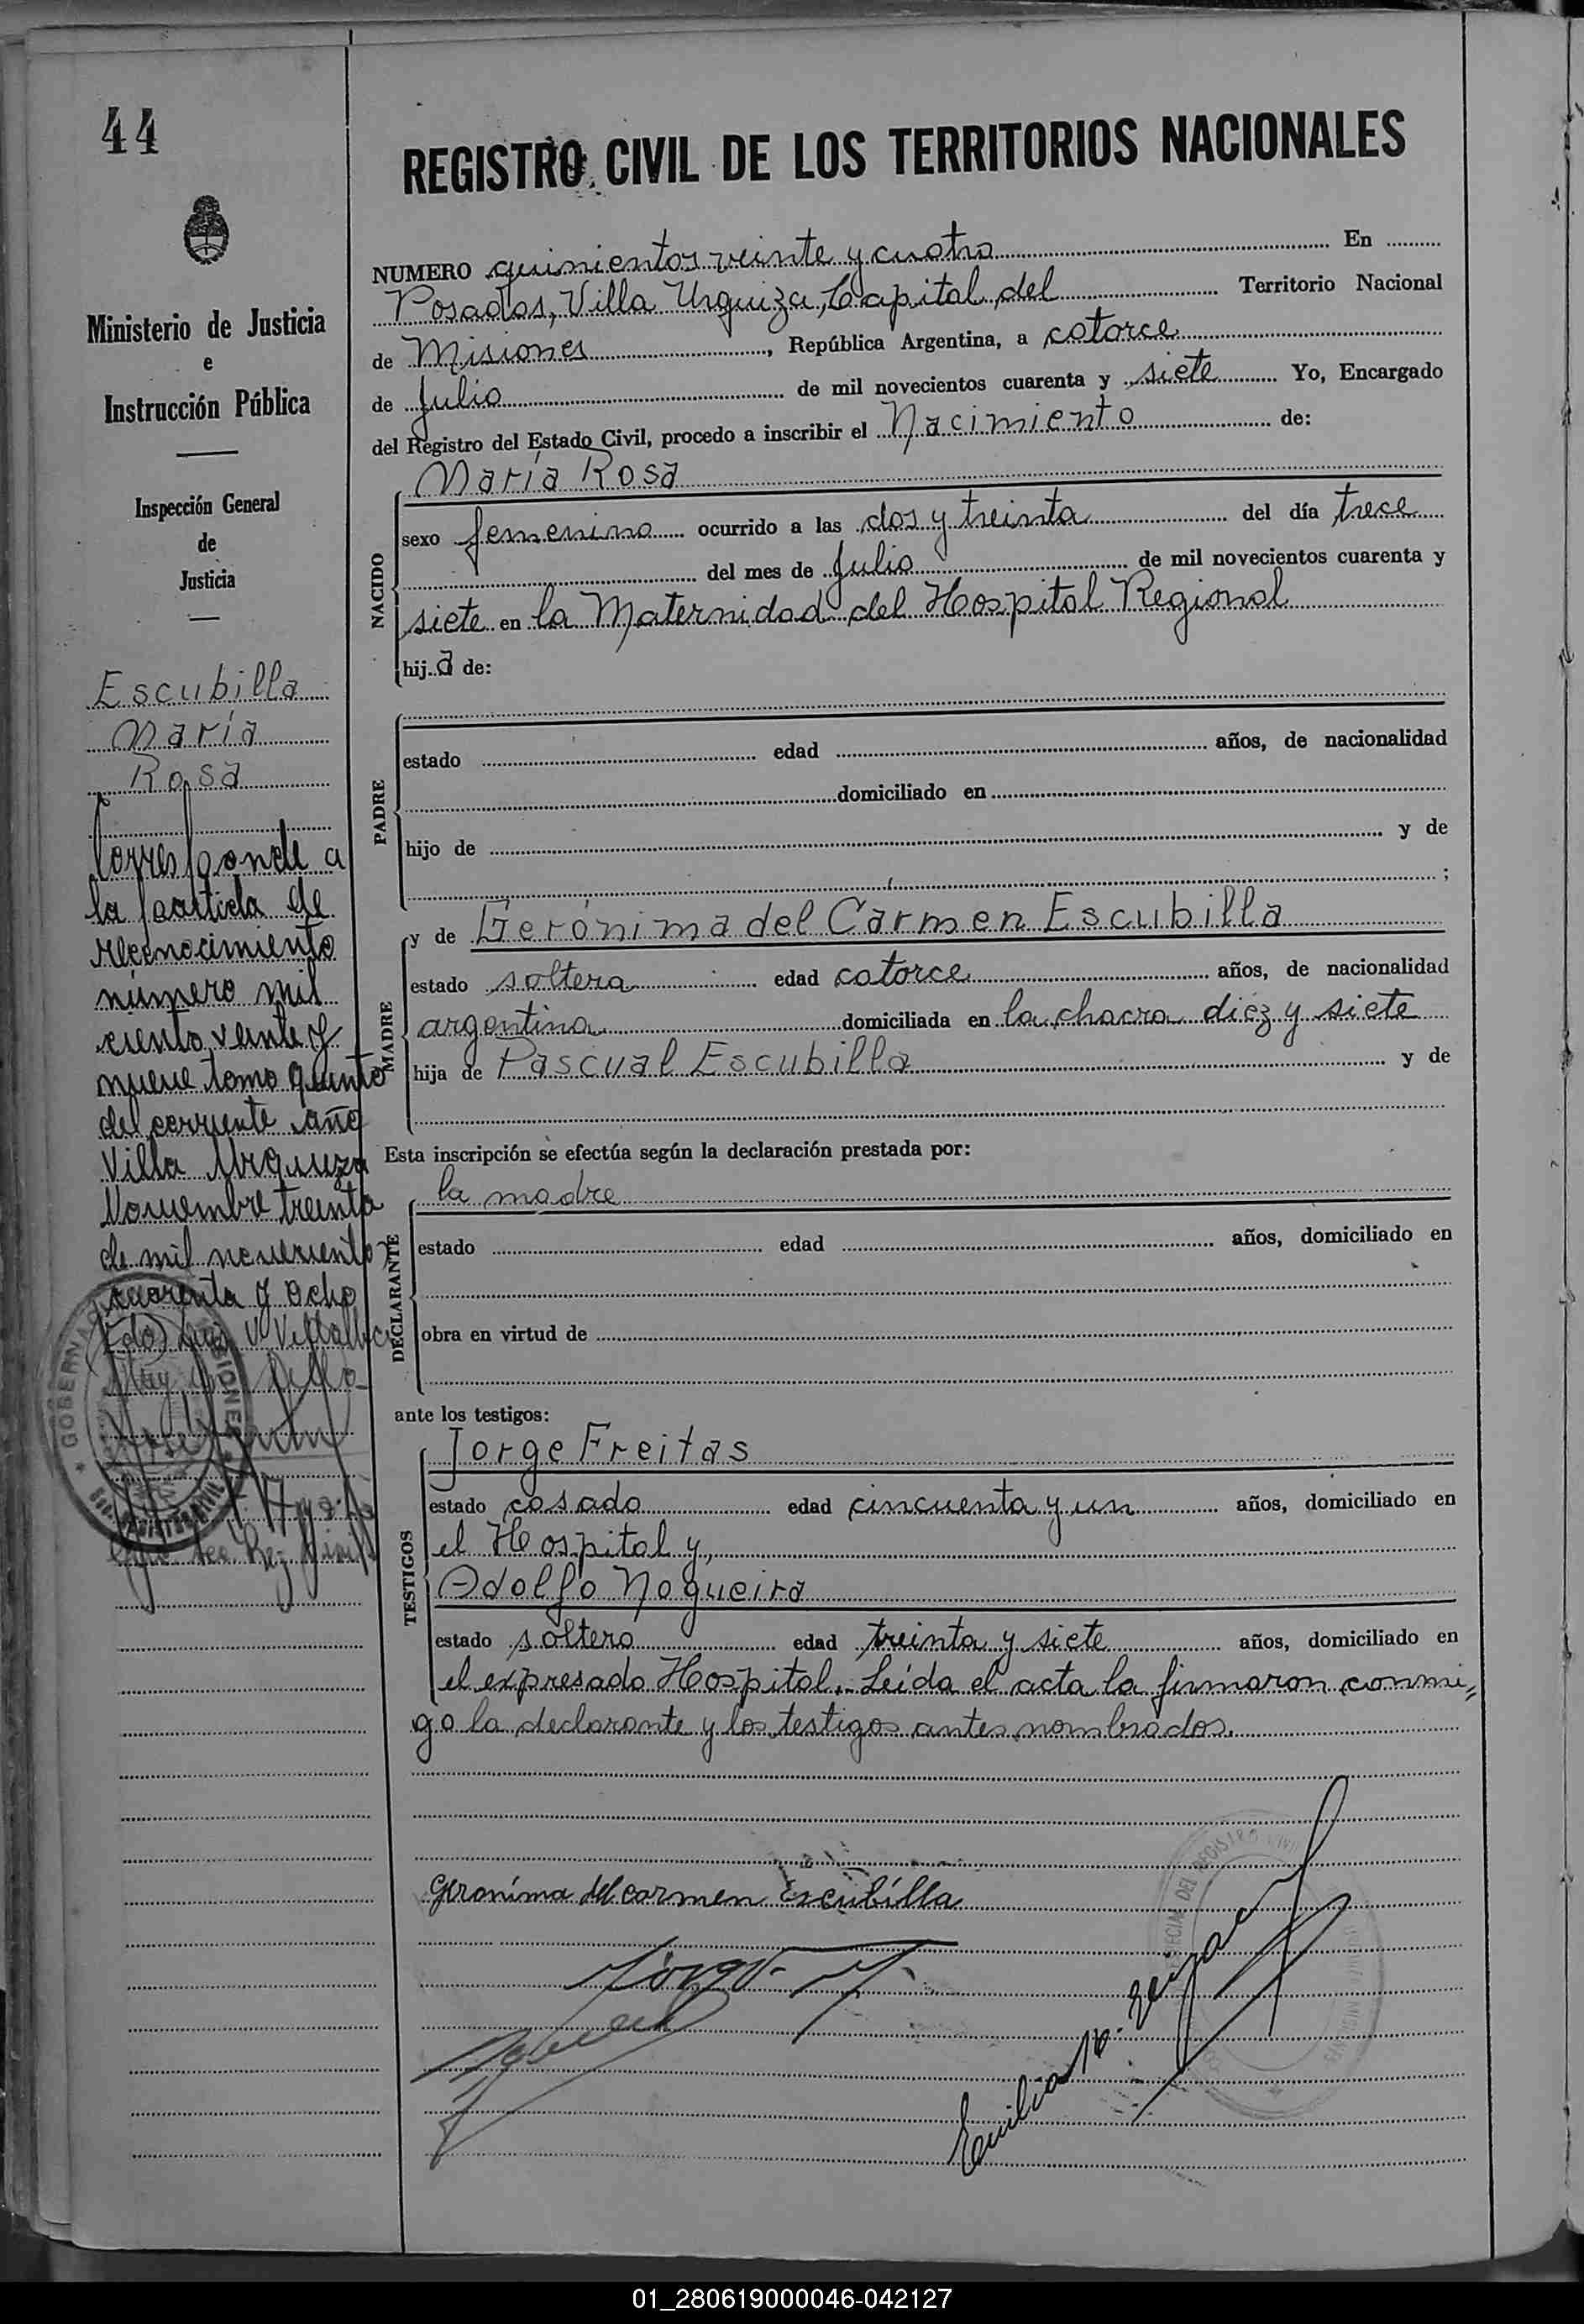 44
REGISTRO CIVIL DE LOS TERRITORIOS NACIONALES
Ministerio de Justicia
e
Instrucción Pública
Inspección General
de
Justicia
Escubilla
María
Rosa
Corresponde a
la partida de
reconocimiento
número mil
ciento veinte y
nueve tomo quinto
del corriente año
Villa Urquiza
Noviembre treinta
de mil novecientos
cuarenta y ocho
(Fdo) Luis V. 
NUMERO quinientos veinte y cuatro En
Posadas, Villa Urquiza, Capital del Territorio Nacional
de Misiones, República Argentina, a catorce
de Julio de mil novecientos cuarenta y siete Yo, Encargado
del Registro del Estado Civil, procedo a inscribir el Nacimiento de:
María Rosa
NACIDO
sexo femenino ocurrido a las dos y treinta del día trece
del mes de Julio de mil novecientos cuarenta y
siete en la Maternidad del Hospital Regional
hija de:
PADRE
estado edad años, de nacionalidad
domiciliado en
hijo de y de
;
MADRE
y de Gerónima del Carmen Escubilla
estado soltera edad catorce años, de nacionalidad
argentina domiciliada en la chacra diez y siete
hija de Pascual Escubilla y de
Esta inscripción se efectúa según la declaración prestada por:
la madre
DECLARANTE
estado edad años, domiciliado en
obra en virtud de
ante los testigos:
TESTIGOS
Jorge Freitas
estado casado edad cincuenta y un años, domiciliado en
el Hospital y,
Adolfo Nogueira
estado soltero edad treinta y siete años, domiciliado en
el expresado Hospital. Leída el acta la firmaron conmi=
go la declarante y los testigos antes nombrados.
Geronima del carmen Escubilla
Jorge F.
01_280619000046-042127